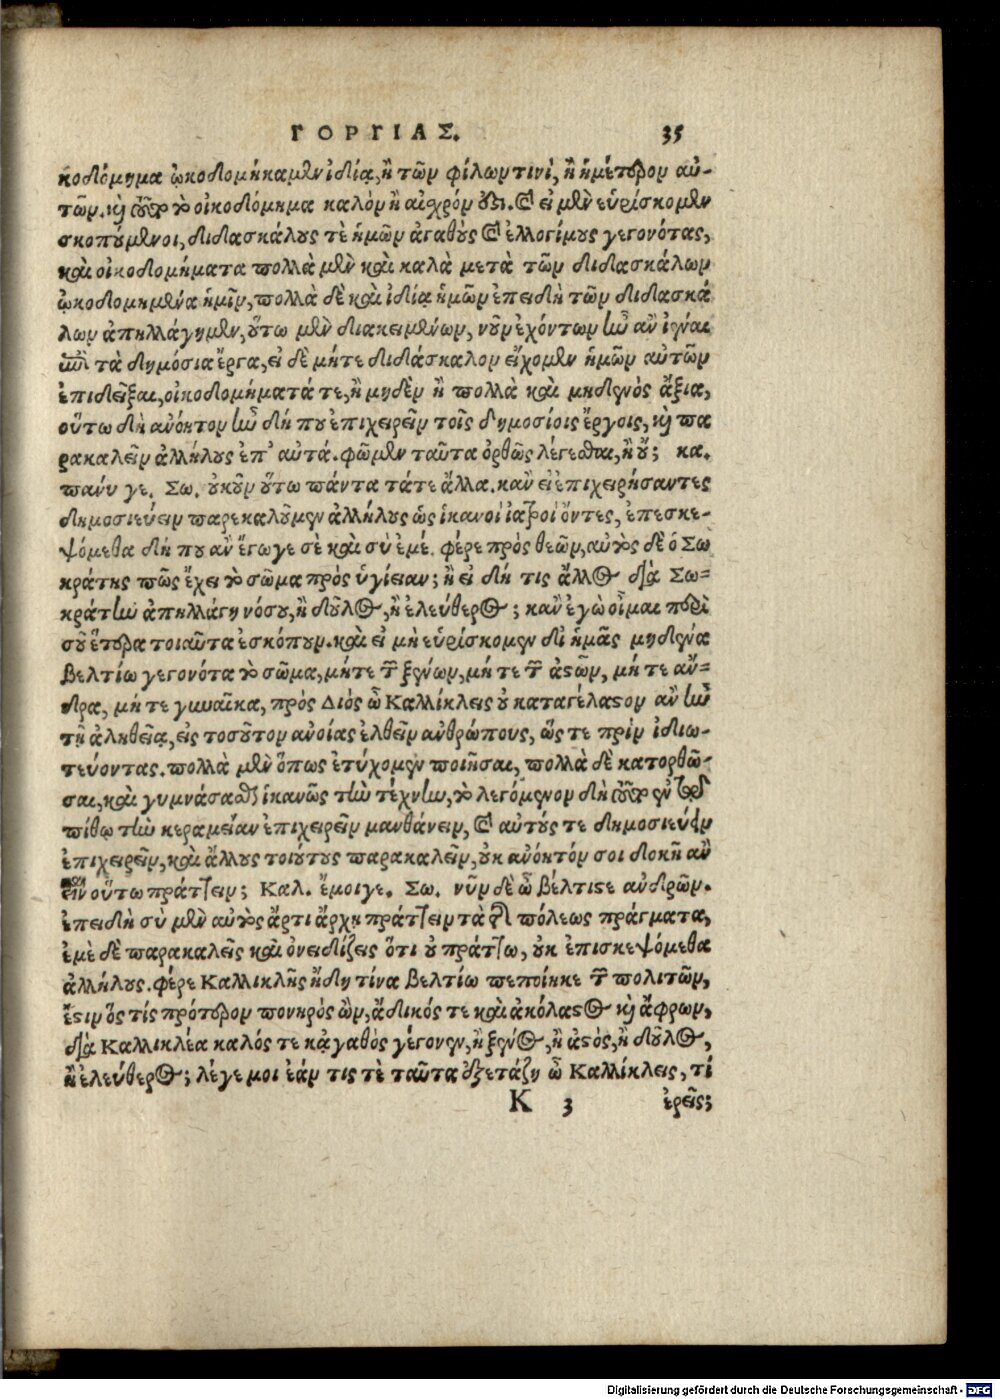 ΓΟΡΓΙΑΣ. 35
κοδόμημα ᾠκοδομήκαμεν ἰδίᾳ, ἢ τῶν φίλων τινὶ, ἢ ἡμέτερον αὐ-
τῶν. καὶ τοῦτο τὸ οἰκοδόμημα καλὸν ἢ αἰχρόν ἐστι. καὶ εἰ μὲν εὑρίσκομεν
σκοπούμενοι, διδασκάλους τὲ ἡμῶν ἀγαθοὺς καὶ ἐλλογίμους γεγονότας,
καὶ οἰκοδομήματα πολλὰ μὲν καὶ καλὰ μετὰ τῶν διδασκάλων
ᾠκοδομημένα ἡμῖν, πολλὰ δὲ καὶ ἰδίᾳ ἡμῶν ἐπειδὴ τῶν διδασκά
λων ἀπηλλάγημεν, οὕτω μὲν διακειμένων, νοῦν ἐχόντων ἦν ἂν ἰέναι
ἐπὶ τὰ δημόσια ἔργα, εἰ δὲ μήτε διδάσκαλον εἴχομεν ἡμῶν αὐτῶν
ἐπιδεῖξαι, οἰκοδομήματά τε, ἢ μηδὲν ἢ πολλὰ καὶ μηδενὸς ἄξια,
οὕτω δὴ ἀνόητον ἦν δή που ἐπιχειρεῖν τοῖς δημοσίοις ἔργοις, καὶ πα
ρακαλεῖν ἀλλήλους ἐπ' αὐτά. φῶμεν ταῦτα ὀρθῶς λέγεσθαι, ἢ οὔ; κα.
πανύ γε. Σω. οὐκοῦν οὕτω πάντα τάτε ἄλλα. κἂν εἰ ἐπιχειρήσαντες
δημοσιεύειν παρεκαλοῦμεν ἀλλήλους ὡς ἱκανοὶ ἰατροὶ ὄντες, ἐπεσκε-
ψόμεθα δή που ἂν ἔγωγε σὲ καὶ σὺ ἐμέ. φέρε πρὸς θεῶν, αὐτὸς δὲ ὁ Σω
κράτης πῶς ἔχει τὸ σῶμα πρὸς ὑγίειαν; ἢ εἰ δή τις ἄλλος διὰ Σω=
κράτην ἀπηλλάγη νόσου, ἢ δοῦλος, ἢ ἐλεύθερος; κἂν ἐγὼ οἶμαι περὶ
σοῦ ἕτερα τοιαῦτα ἐσκόπουν. καὶ εἰ μὴ εὑρίσκομεν δι ἡμᾶς μηδένα
βελτίω γεγονότα τὸ σῶμα, μήτε τῶν ξένων, μή τε τῶν ἀστῶν, μή τε ἄν=
δρα, μή τε γυναῖκα, πρὸς Διὸς ὦ Καλλίκλεις οὐ καταγέλαστον ἂν ἦν
τῇ ἀληθείᾳ, εἰς τοσοῦτον ἀνοίας ἐλθεῖν ἀνθρώπους, ὥς τε πρὶν ἰδιω-
τεύοντας. πολλὰ μὲν ὅπως ἐτύχομεν ποιῆσαι, πολλὰ δὲ κατορθῶ-
σαι, καὶ γυμνάσασθαι ἱκανῶς τὴν τέχνην, τὸ λεγόμενον δὴ τοῦτο ἐν τῷ
πίθῳ τὴν κεραμείαν ἐπιχειρεῖν μανθάνειν, καὶ αὐτούς τε δημοσιεύειν
ἐπιχειρεῖν, καὶ ἄλλους τοιούτους παρακαλεῖν, οὐκ ἀνόητόν σοι δοκῇ ἂν
εἶναι οὕτω πράττειν; Καλ. ἔμοιγε. Σω. νῦν δὲ ὦ βέλτιστε ἀνδρῶν.
ἐπειδὴ σὺ μὲν αὐτὸς ἄρτι ἄρχῃ πράττειν τὰ τῆς πόλεως πράγματα,
ἐμὲ δὲ παρακαλεῖς καὶ ὀνειδίζεις ὅτι οὐ πράττω, οὐκ ἐπισκεψόμεθα
ἀλλήλους. φέρε Καλλικλῆς ἤδη τίνα βελτίω πεποίηκε τῶν πολιτῶν,
ἔστιν ὅς τίς πρότερον πονηρὸς ὢν, ἄδικός τε καὶ ἀκόλαστος καὶ ἄφρων,
διὰ Καλλικλέα καλός τε κᾀγαθὸς γέγονεν, ἢ ξένος, ἢ ἀστός, ἢ δοῦλος,
ἢ ἐλεύθερος; λέγε μοι ἐάν τις τὲ ταῦτα ἐξετάζῃ ὦ Καλλίκλεις, τί
K 3 ἐρεῖς;
Digitalisierung gefördert durch die Deutsche Forschungsgemeinschaft - DFG